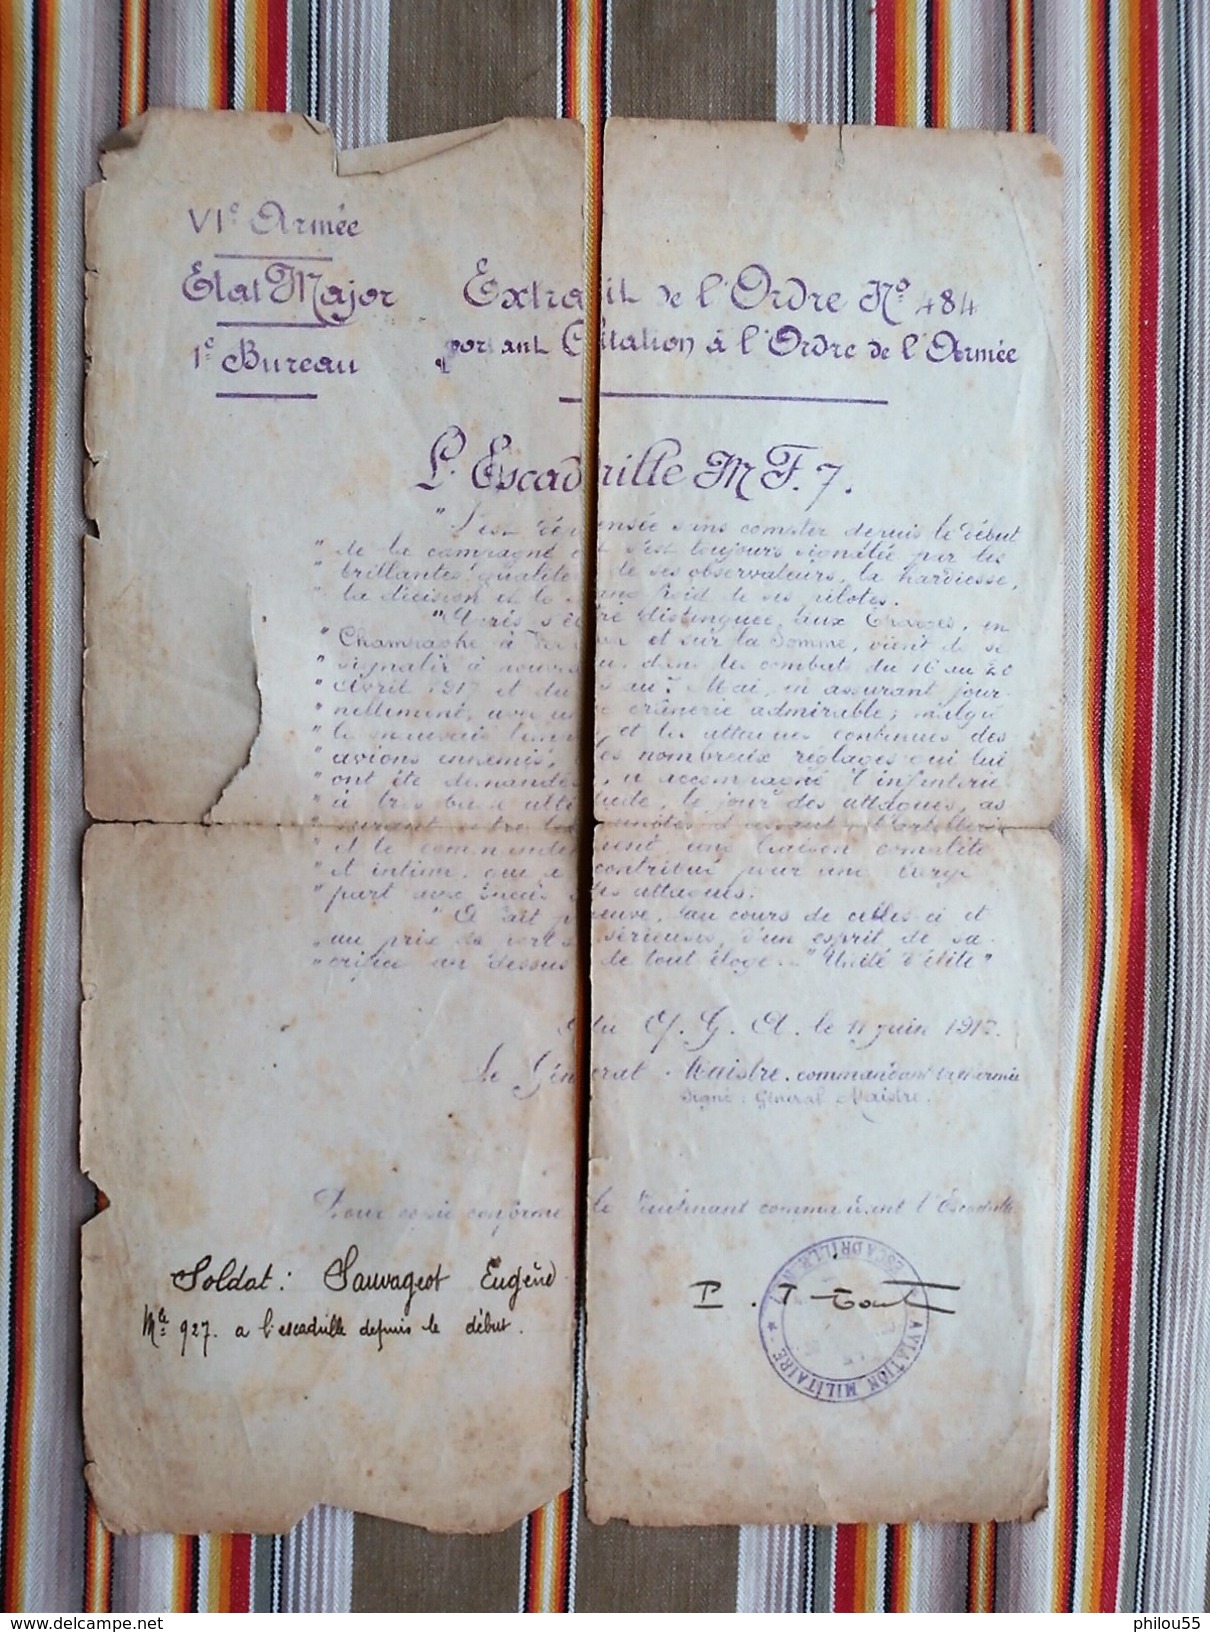 VIe Armée
Etat Major
1e Bureau
Extrait de l'Ordre No 484
portant Citation à l'Ordre de l'Armée
L'Escadrille M F. 7.
" S'est dépensée sans compter depuis le début
" de la campagne et s'est toujours signalée par les
" brillantes qualités de ses observateurs, la hardiesse,
" la décision et le sang froid de ses pilotes.
" Après s'être distinguée aux Eparges, en
" Champagne à Verdun et sur la Somme, vient de se
" signaler à nouveau, dans les combats du 16 au 20
" Avril 1917 et du au 7 Mai, en assurant jour-
" nellement, avec une crânerie admirable, malgré
" le mauvais temps, et les attaques continues des
" avions ennemis, les nombreux réglages qui lui
" ont été demandés, a accompagné l'infanterie
" à très basse altitude, le jour des attaques, as
" surant entre les unités d'assaut, l'artillerie
" et le commandement une liaison complète
" et intime, qui a contribué pour une large
" part aux succès des attaques.
" A fait preuve, au cours de celles ci et
" au prix de pertes sérieuses, d'un esprit de sa-
" crifice au dessus de tout éloge. "Unité d'élite"
Q. G. A. le 11 juin 1917.
Le Général Maistre. commandant la VI armée
Signé : Général Maistre.
Pour copie conforme le Lieutenant commandant l'Escadrille
Soldat : Sauvageot Eugène
Mle 927. a l'escadrille depuis le début.
AVIATION MILITAIRE ★ ESCADRILLE
philou55